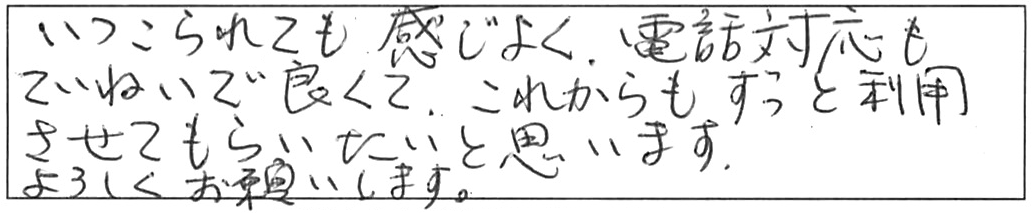 いつこられても感じよく、電話対応も
ていねいで良くて、これからもずっと利用
させてもらいたいと思います。
よろしくお願いします。